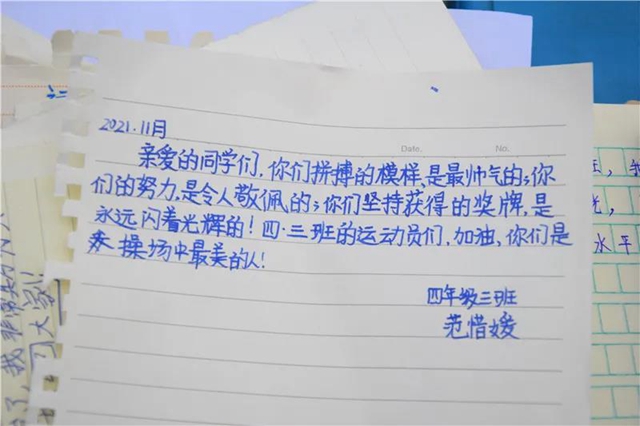 2021.11月
Date. No.
亲爱的同学们，你们拼搏的模样，是最帅气的；你
们的努力，是令人敬佩的；你们坚持获得的奖牌，是
永远闪着光辉的！四·三班的运动员们，加油，你们是
操场中最美的人！
四年级三班
范惜媛
水平